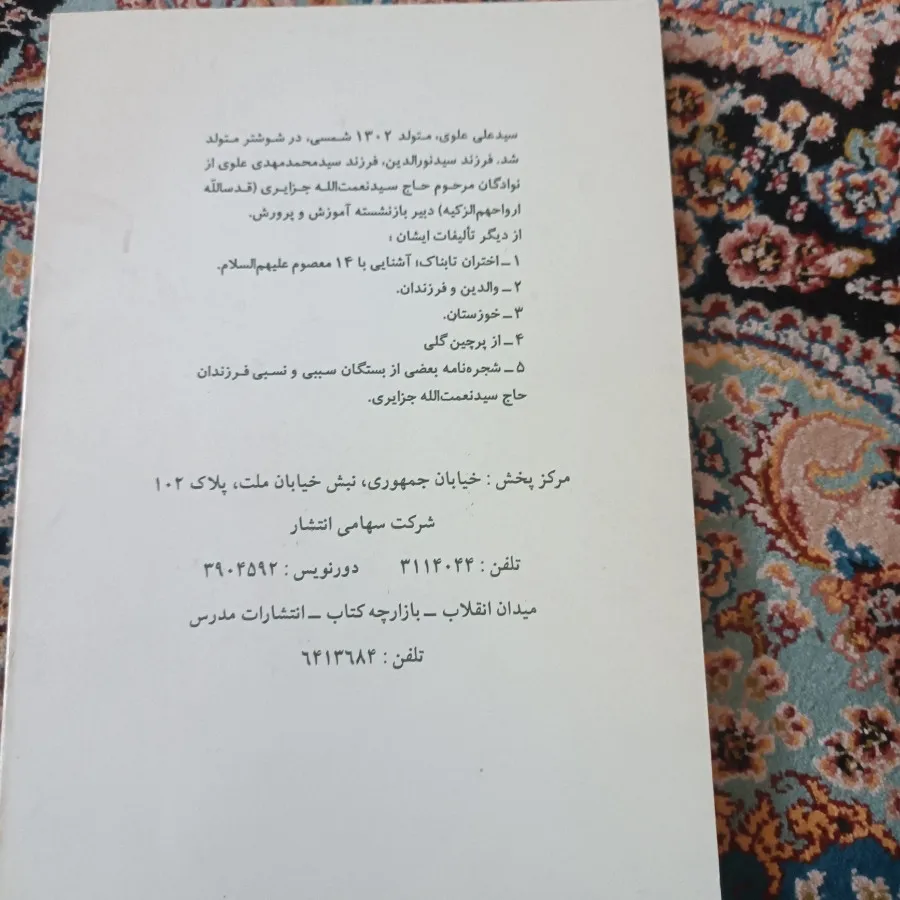 سیدعلی علوی، متولد ۱۳۰۲ شمسی، در شوشتر متولد
شد. فرزند سیدنورالدین، فرزند سیدمحمدمهدی علوی از
نوادگان مرحوم حاج سیدنعمت‌الله جزایری (قدسالله
ارواحهم‌الزکیه) دبیر بازنشسته آموزش و پرورش.
از دیگر تألیفات ایشان :
۱ـ اختران تابناک؛ آشنایی با ۱۴ معصوم علیهم‌السلام.
۲ـ والدین و فرزندان.
۳ـ خوزستان.
۴ـ از پرچین گلی
۵ـ شجره‌نامه بعضی از بستگان سببی و نسبی فرزندان
حاج سیدنعمت‌الله جزایری.
مرکز پخش : خیابان جمهوری، نبش خیابان ملت، پلاک ۱۰۲
شرکت سهامی انتشار
تلفن : ۳۱۱۴۰۴۴ دورنویس : ۳۹۰۴۵۹۲
میدان انقلاب ـ بازارچه کتاب ـ انتشارات مدرس
تلفن : ۶۴۱۳۶۸۴